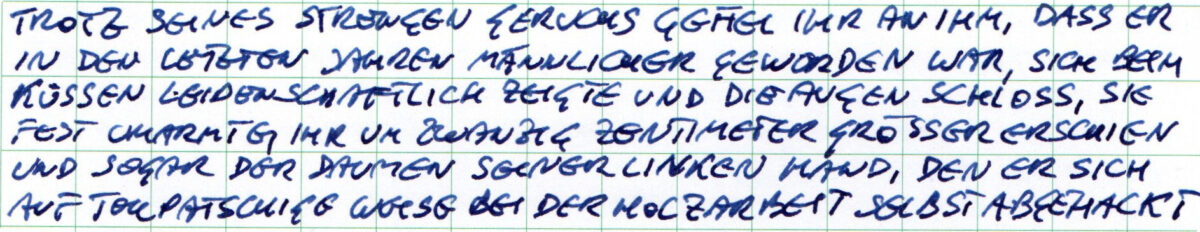 TROTZ SEINES STRENGEN GERUCHS GEFIEL IHR AN IHM, DASS ER
IN DEN LETZTEN JAHREN MÄNNLICHER GEWORDEN WAR, SICH BEIM
KÜSSEN LEIDENSCHAFTLICH ZEIGTE UND DIE AUGEN SCHLOSS, SIE
FEST UMARMTE, IHR UM ZWANZIG ZENTIMETER GRÖSSER ERSCHIEN
UND SOGAR DER DAUMEN SEINER LINKEN HAND, DEN ER SICH
AUF TOLPATSCHIGE WEISE BEI DER HOLZARBEIT SELBST ABGEHACKT